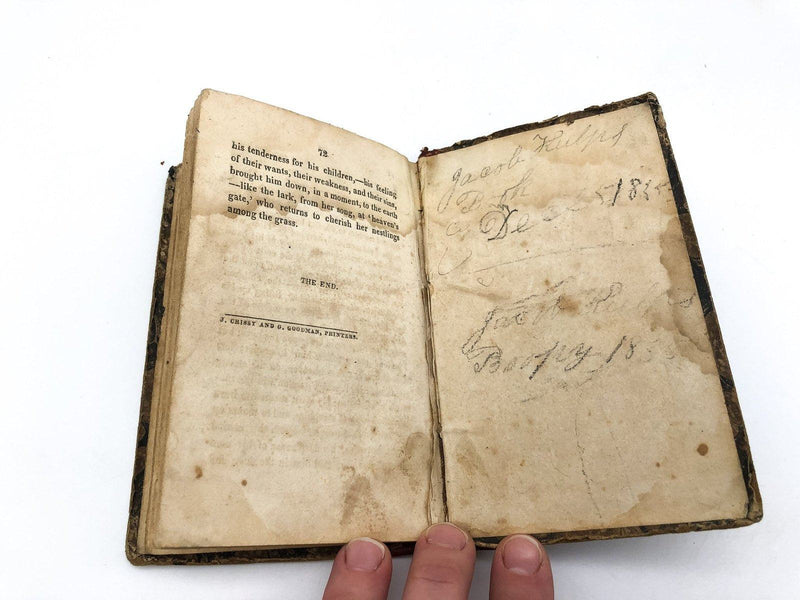 72
his tenderness for his children,—his feeling
of their wants, their weakness, and their sins,
brought him down, in a moment, to the earth
—like the lark, from her song, at 'heaven's
gate,' who returns to cherish her nestlings
among the grass.
THE END.
J. CRISSY AND G. GOODMAN, PRINTERS.
Jacob Kulps
Book
Dec 5 1835
Jacob
1835